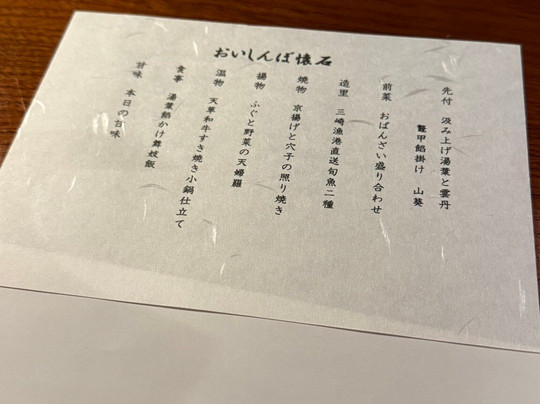 おいしんぼ懐石
先付 汲み上げ湯葉と雲丹
鼈甲餡掛け 山葵
前菜 おばんざい盛り合わせ
造里 三崎漁港直送旬魚二種
焼物 京揚げと穴子の照り焼き
揚物 ふぐと野菜の天婦羅
温物 天草和牛すき焼き小鍋仕立て
食事 湯葉餡かけ舞妓飯
甘味 本日の甘味